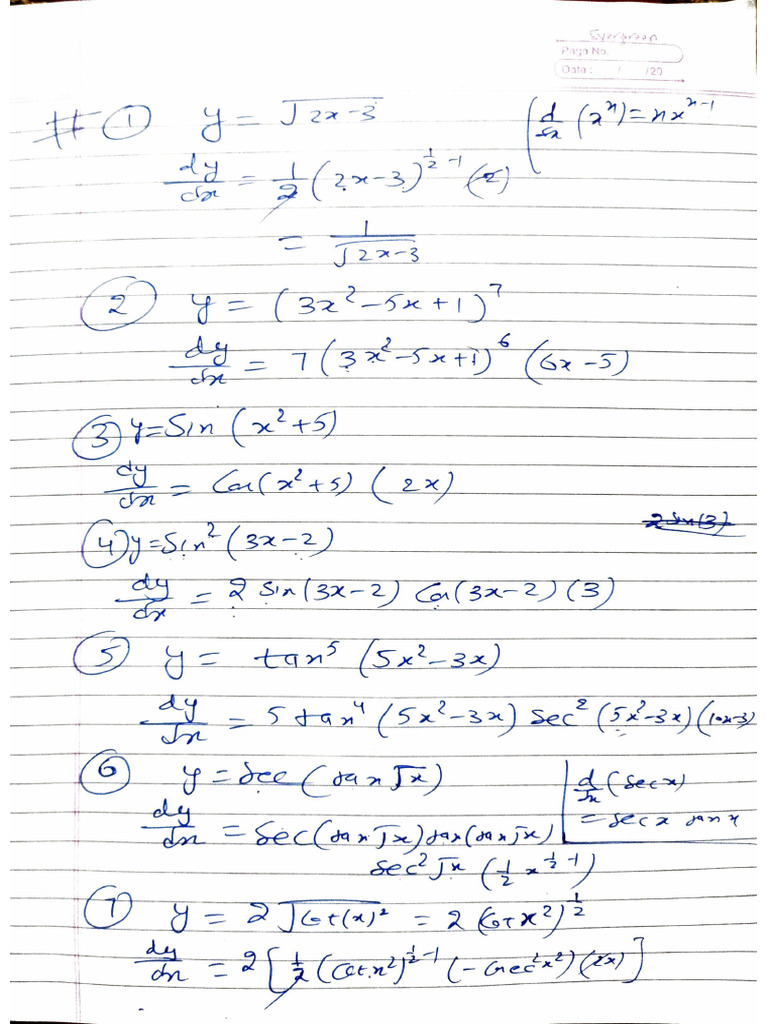 Evergreen
Page No.
Date : / /20
# ① y = √2x-3
(d/dx (xⁿ) = nxⁿ⁻¹
dy/dx = 1/2 (2x-3)^(1/2 -1) (2)
= 1/√2x-3
② y = (3x²-5x+1)⁷
dy/dx = 7(3x²-5x+1)⁶ (6x-5)
③ y=Sin (x²+5)
dy/dx = Cos(x²+5) (2x)
2 Sin(3)
④ y=Sin² (3x-2)
dy/dx = 2 Sin(3x-2) Cos(3x-2) (3)
⑤ y = tan⁵ (5x²-3x)
dy/dx = 5 tan⁴ (5x²-3x) Sec² (5x²-3x) (10x-3)
⑥ y = Sec (tan √x)
d/dx (Secx)
= Secx tanx
dy/dx = Sec(tan √x) tan(tan √x)
Sec² √x (1/2 x^(1/2 -1))
⑦ y = 2 √Cot(x)² = 2 (Cot x²)^(1/2)
dy/dx = 2 [1/2 (Cot x²)^(1/2 -1) (-Cosec²x²) (2x)]